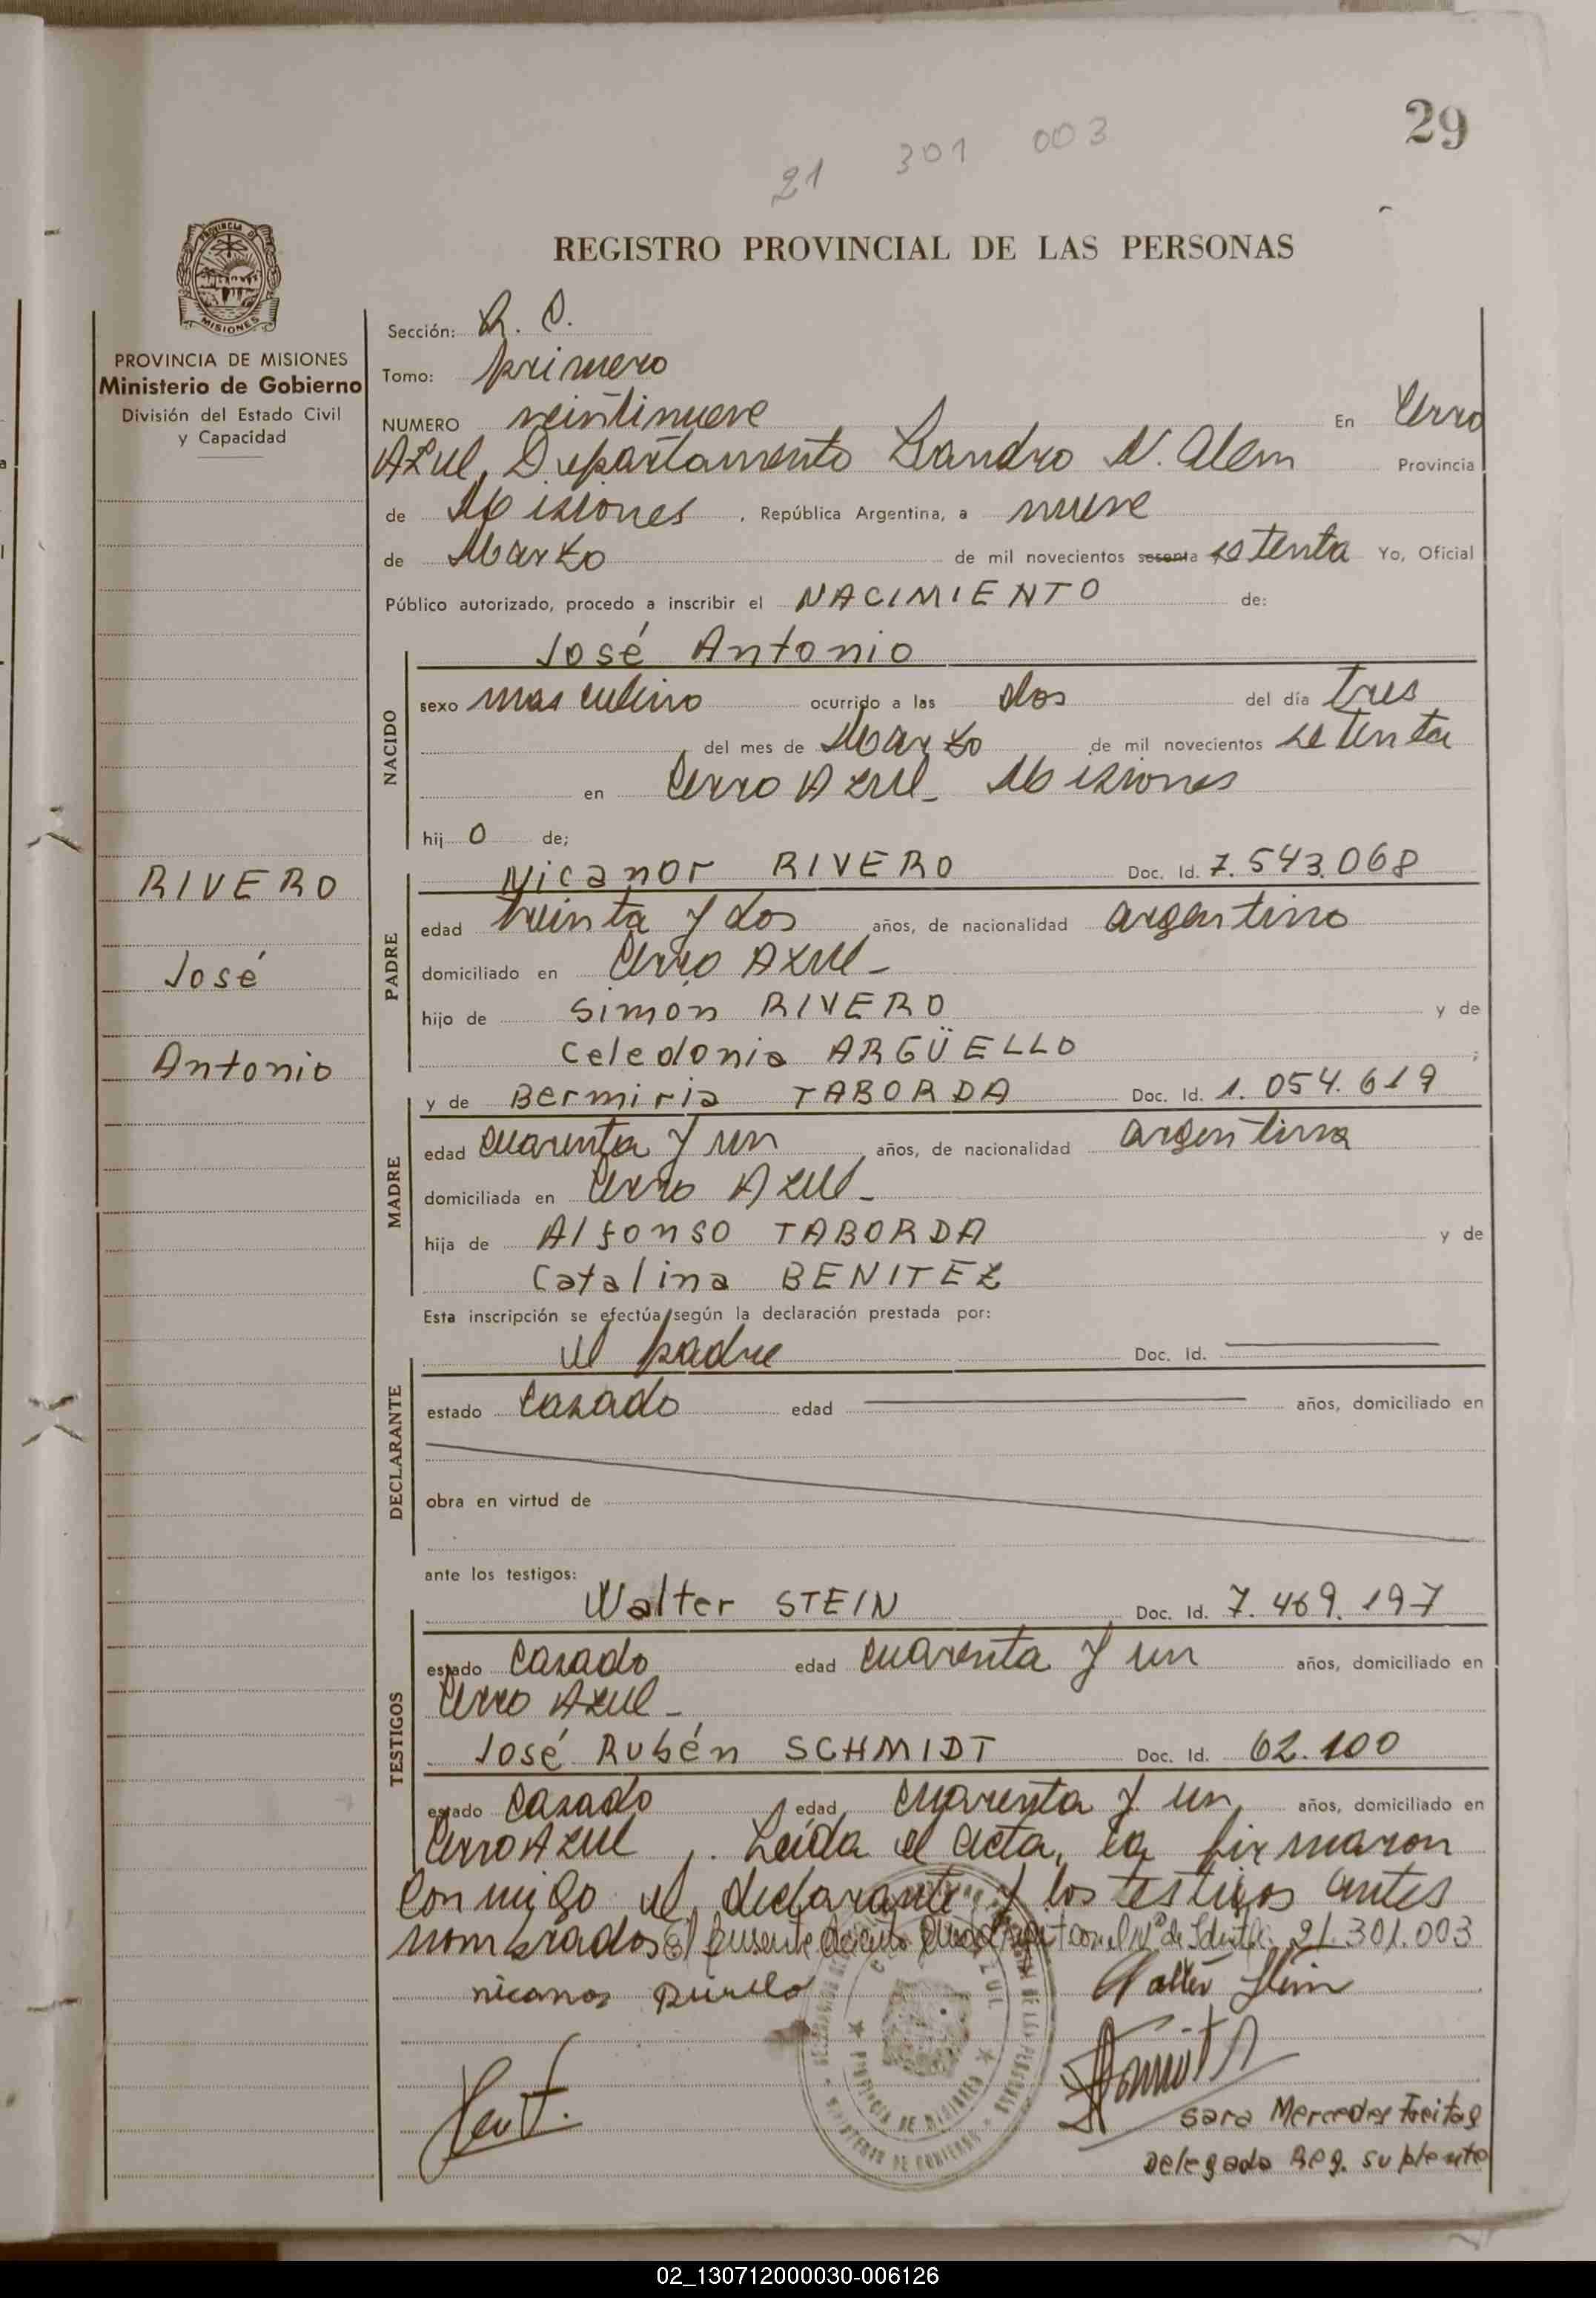 29
21 301 003
REGISTRO PROVINCIAL DE LAS PERSONAS
PROVINCIA DE MISIONES
Ministerio de Gobierno
División del Estado Civil
y Capacidad
RIVERO
José
Antonio
Sección:
Tomo: primero
NUMERO veintinueve En Cerro
Azul, Departamento Leandro N. Alem Provincia
de Misiones, República Argentina, a nueve
de Marzo de mil novecientos sesenta setenta Yo, Oficial
Público autorizado, procedo a inscribir el NACIMIENTO de:
José Antonio
NACIDO
sexo masculino ocurrido a las dos del día tres
del mes de Marzo de mil novecientos setenta
en Cerro Azul - Misiones
hij o de;
Nicanor RIVERO Doc. Id. 7.543.068
PADRE
edad treinta y dos años, de nacionalidad argentino
domiciliado en Cerro Azul -
hijo de Simón RIVERO y de
Celedonia ARGÜELLO ;
y de Bermiria TABORDA Doc. Id. 1.054.619
MADRE
edad cuarenta y un años, de nacionalidad argentina
domiciliada en Cerro Azul -
hija de Alfonso TABORDA y de
Catalina BENITEZ
Esta inscripción se efectúa según la declaración prestada por:
el padre Doc. Id.
DECLARANTE
estado casado edad años, domiciliado en
obra en virtud de
ante los testigos:
Walter STEIN Doc. Id. 7.469.197
TESTIGOS
estado casado edad cuarenta y un años, domiciliado en
Cerro Azul -
José Rubén SCHMIDT Doc. Id. 62.100
estado casado edad cuarenta y un años, domiciliado en
Cerro Azul. Leída el acta, la firmaron
conmigo el declarante y los testigos antes
nombrados El presente de Identif. 21.301.003
Walter Stein
Sara Mercedes Freitag
Delegada Reg. suplente
PROVINCIA DE MISIONES
MINISTERIO DE GOBIERNO
02_130712000030-006126